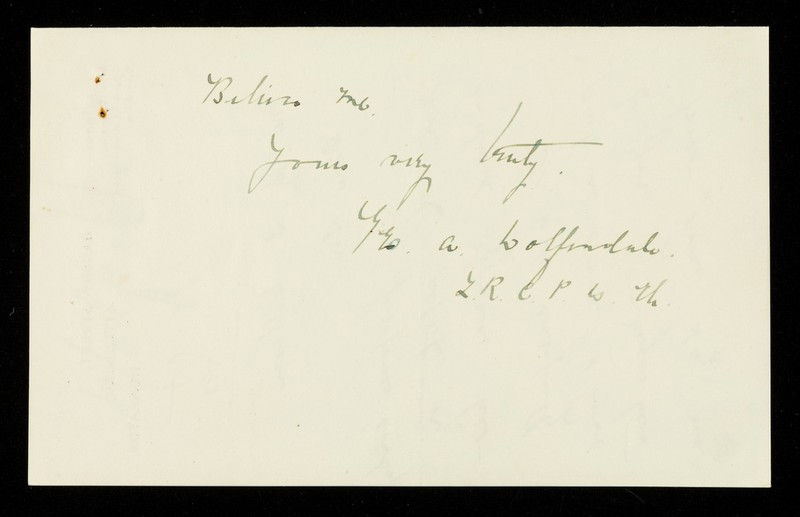 Believe me.
Yours very truly.
Geo. A. Wolfendale.
L.R.C.P.